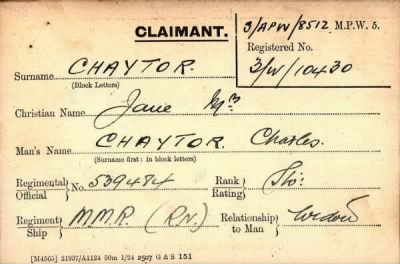 CLAIMANT.
3/APW/8512 M.P.W. 5.
Registered No.
3/W/10430
Surname CHAYTOR
(Block Letters)
Christian Name Jane Mrs
Man's Name CHAYTOR. Charles.
(Surname first: in block letters)
Regimental Official No. 539484 Rank Rating Sto:
Regiment Ship M.M.R. (R.N.) Relationship to Man Widow
[M4565] 21937/A1124 50m 1/24 2507 G & S 151